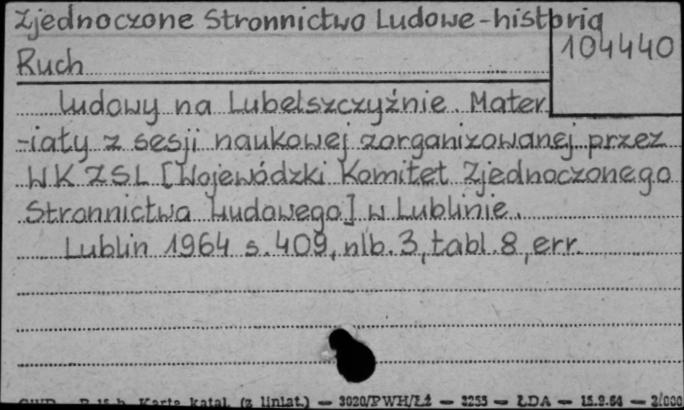 Zjednoczone Stronnictwo Ludowe - historia
104440
Ruch
ludowy na Lubelszczyźnie. Mater
-iały z sesji naukowej zorganizowanej przez
WK ZSL [Wojewódzki Komitet Zjednoczonego
Stronnictwa Ludowego] w Lublinie.
Lublin 1964 s. 409, nlb. 3, tabl. 8, err.
Karta katal. (z liniat.) — 3020/PWH/Łż — 3255 — ŁDA — 15.9.64 — 2/000